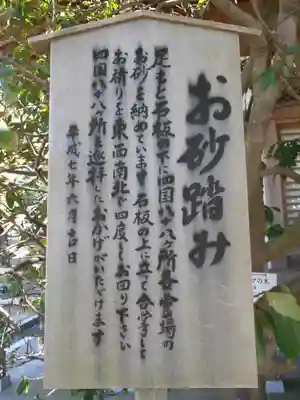 お砂踏み
足もと石板の下に四国八十八ヶ所各霊場の
お砂を納めています石板の上に立て合掌して
お祈りを東西南北で四度しお回り下さい
四国八十八ヶ所を巡拝したおかげがいたゞけます
平成七年六月吉日